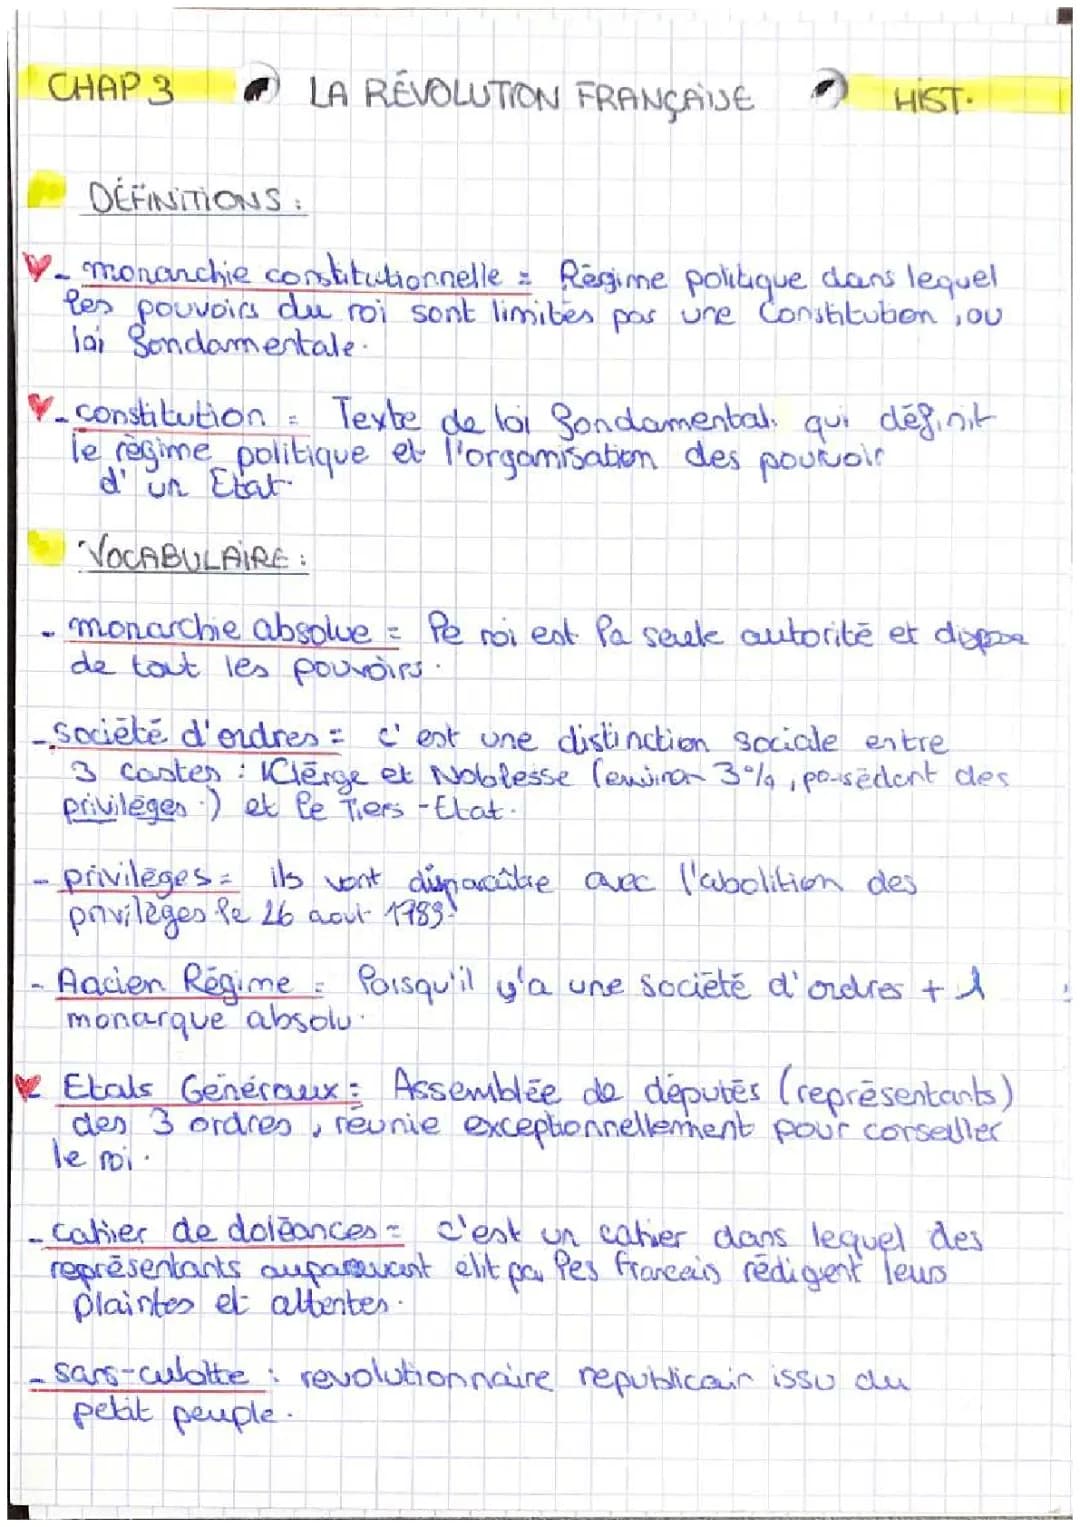 CHAP 3 LA RÉVOLUTION FRANÇAISE HIST.
DÉFINITIONS :
- monarchie constitutionnelle = Régime politique dans lequel
les pouvoirs du roi sont limités par une Constitution, ou
loi fondamentale.
- constitution = Texte de loi fondamental qui définit
le règime politique et l'organisation des pouvoir
d'un Etat.
VOCABULAIRE :
- monarchie absolue = le roi est la seule autorité et dispose
de tout les pouvoirs.
- société d'ordres = c'est une distinction sociale entre
3 castes : Clèrge et Noblesse (environ 3%, possèdent des
privilèges.) et le Tiers-Etat.
- privilèges = ils vont disparaître avec l'abolition des
privilèges le 26 aout 1789.
- Ancien Régime = lorsqu'il y'a une société d'ordres + 1
monarque absolu.
Etats Généraux = Assemblée de députés (représentants)
des 3 ordres, réunie exceptionnellement pour conseiller
le roi.
- cahier de doléances = c'est un cahier dans lequel des
représentants auparavant elit par les francais rédigent leurs
plaintes et attentes.
- sans-culotte : revolutionnaire republicain issu du
petit peuple.